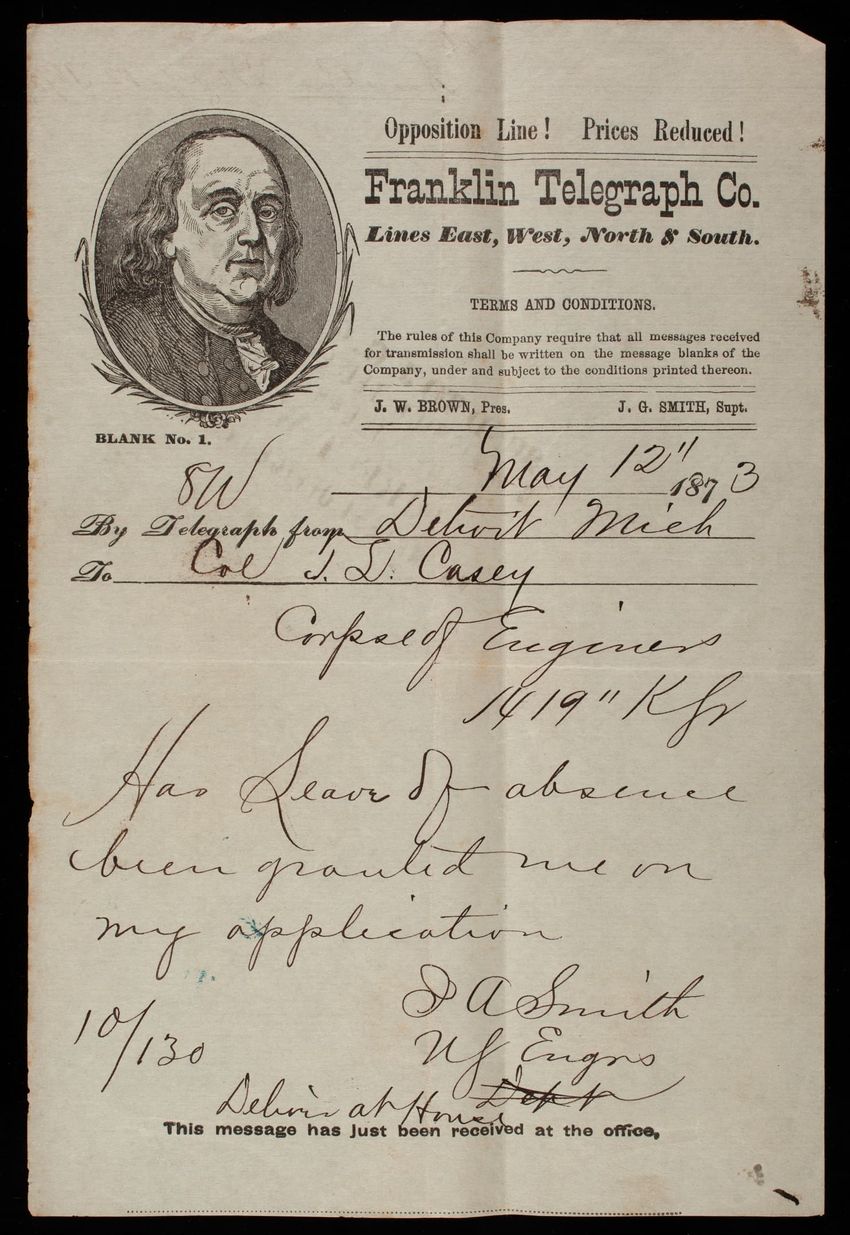 Opposition Line! Prices Reduced!
Franklin Telegraph Co.
Lines East, West, North & South.
TERMS AND CONDITIONS.
The rules of this Company require that all messages received
for transmission shall be written on the message blanks of the
Company, under and subject to the conditions printed thereon.
J. W. BROWN, Pres. J. G. SMITH, Supt.
BLANK No. 1.
May 12" 1873
By Telegraph from Detroit Mich
To Col T. L. Casey
Corpse of Enginers
1419" K
Has Leave of absence
been granted me on
my application
J A Smith
US Engrs
10/130
Dept
Deliver at House
This message has just been received at the office,